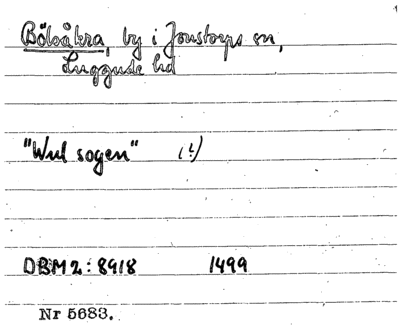 Bölsåkra, by i Jonstorps sn,
Luggude hd
"Wul sogen" (!)
DBM 2: 8918 1499
Nr 5683.